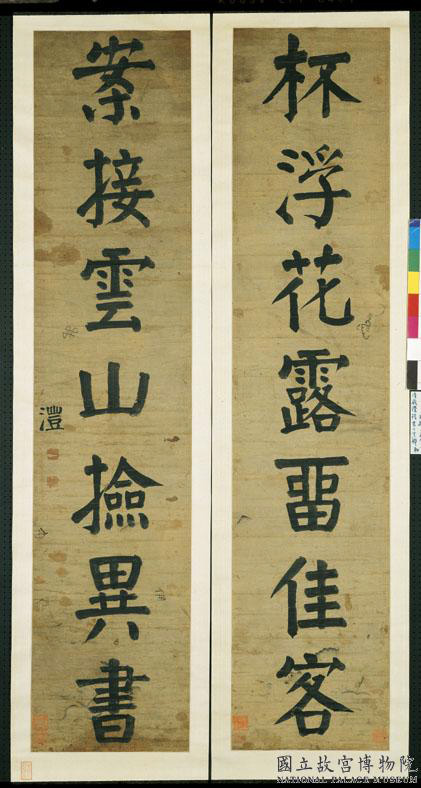 杯浮花露畱佳客
案接雲山撿異書
澧
國立故宮博物院
NATIONAL PALACE MUSEUM